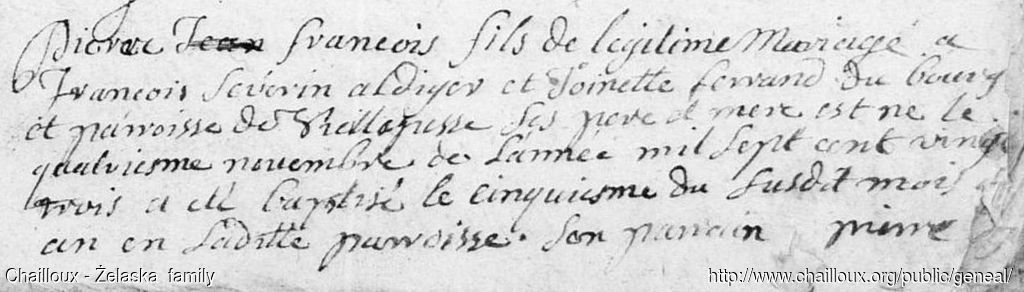 Pierre Jean francois fils de legitime Mariage a
francois Severin aldiger et Toinette ferrand du bourg
et parroisse de Villegusse ses pere et mere est né le
quatriesme novembre de l'année mil sept cent vingt
trois a eté baptisé le cinquiesme du susdit mois
an en laditte parroisse. Son parrain pierre
Chailloux - Żelaska family
http://www.chailloux.org/public/geneal/